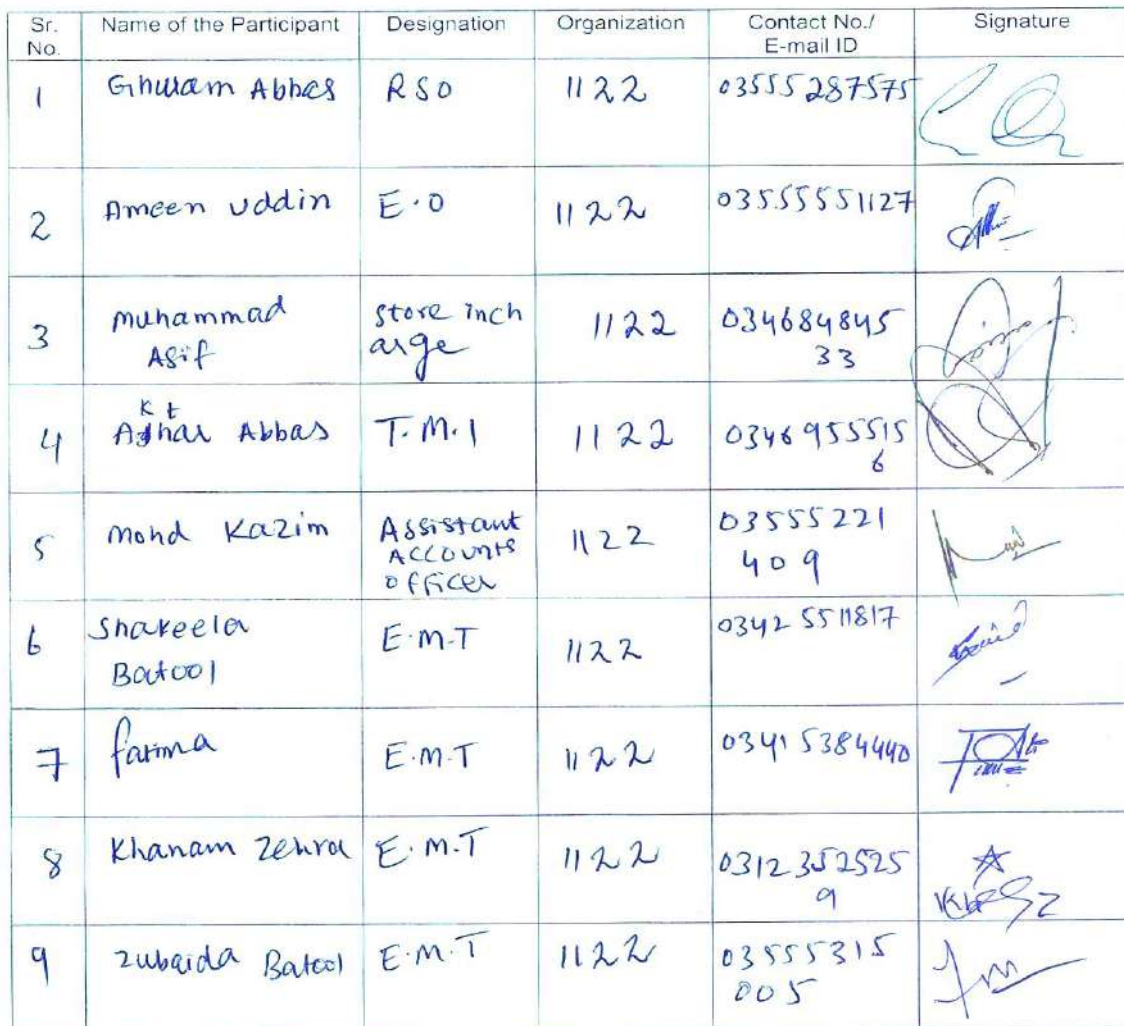 Sr. No. Name of the Participant Designation Organization Contact No./ E-mail ID Signature
1 Ghulam Abbas RSO 1122 03555287575
2 Ameen uddin E.O 1122 03555551127
3 Muhammad Asif store inch arge 1122 034684845 33
4 Abbas T.M.I 1122 0346955515 6
5 Mohd Kazim Assistant Accounts officer 1122 03555221 409
6 Shakeela Batool E.M.T 1122 03425511817
7 fatima E.M.T 1122 03415384440
8 Khanam Zehra E.M.T 1122 0312352525 9
9 Zubaida Batool E.M.T 1122 03555315 005